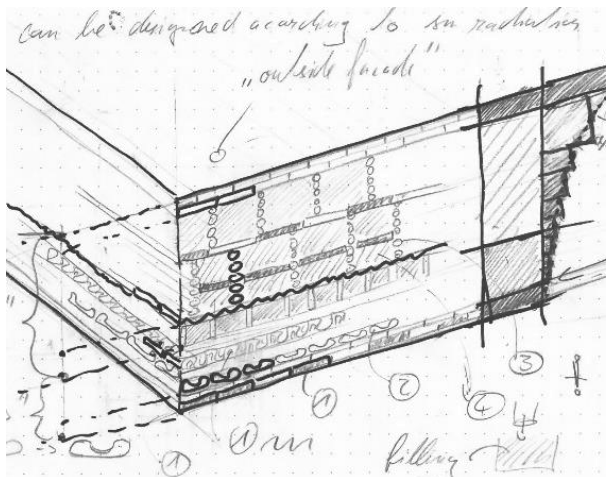 can be designed acording to sun radiation
"outside facade"
1
2
3
!
4
1
1
filling